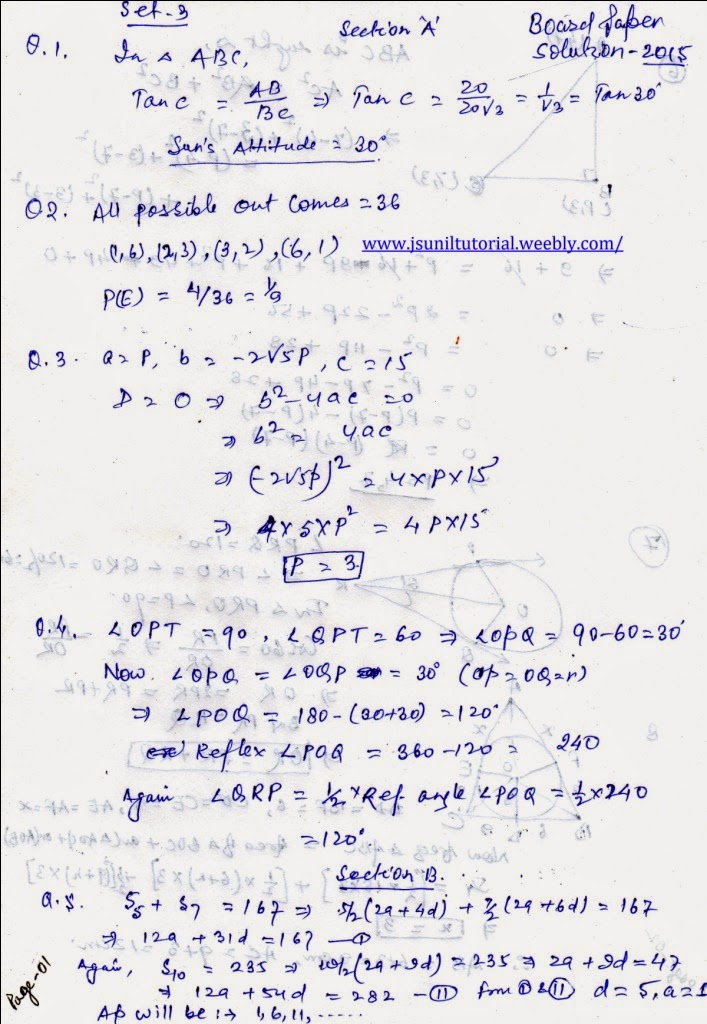 Set-3
Section 'A'
Board Paper
Solution-2015
Q.1. In △ ABC,
Tan C = AB/BC ⇒ Tan C = 20/20√3 = 1/√3 = Tan 30°
Sun's Attitude = 30°
Q2. All possible out comes = 36
(1,6), (2,3), (3,2), (6,1) www.jsuniltutorial.weebly.com/
P(E) = 4/36 = 1/9
Q.3. a = P, b = -2√5P, c = 15
D = 0 ⇒ b²-4ac = 0
⇒ b² = 4ac
⇒ (-2√5P)² = 4×P×15
⇒ 4×5×P² = 4P×15
P = 3
Q.4. ∠OPT = 90, ∠QPT = 60 ⇒ ∠OPQ = 90-60=30°
Now ∠OPQ = ∠OQP = 30° (OP = OQ = r)
⇒ ∠POQ = 180-(30+30) = 120°
Reflex ∠POQ = 360-120 = 240
Again ∠QRP = 1/2 × Ref angle ∠POQ = 1/2×240
=120°
Section B.
Q.5. S5 + S7 = 167 ⇒ 5/2(2a+4d) + 7/2(2a+6d) = 167
⇒ 12a + 31d = 167 — I
Again, S10 = 235 ⇒ 10/2(2a+9d) = 235 ⇒ 2a+9d = 47
⇒ 12a + 54d = 282 — II from I & II d = 5, a = 1
AP will be :→ 1,6,11, .....
Page-01